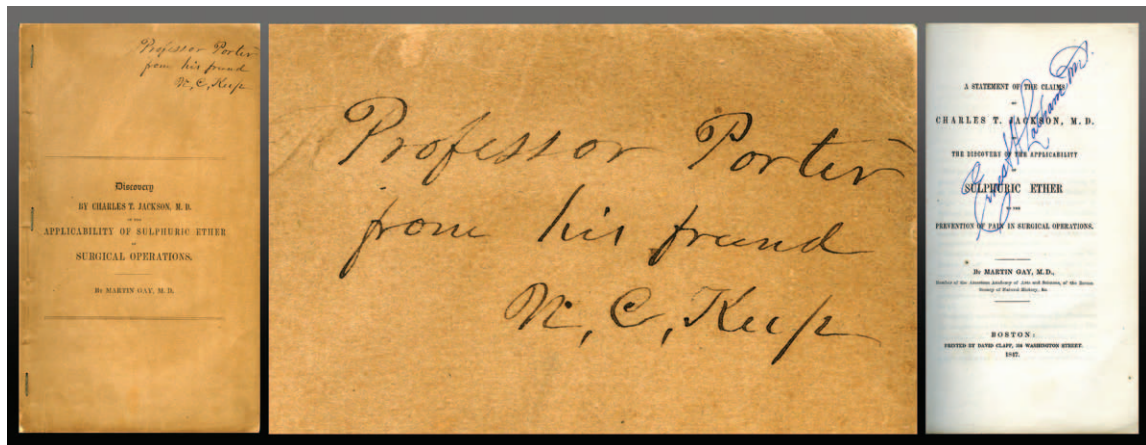 Professor Porter
from his friend
N, C, Keep
Discovery
BY CHARLES T. JACKSON, M. D.
OF THE
APPLICABILITY OF SULPHURIC ETHER
IN
SURGICAL OPERATIONS.
BY MARTIN GAY, M. D.
Professor Porter
from his friend
N, C, Keep
A STATEMENT OF THE CLAIMS
OF
CHARLES T. JACKSON, M. D.
THE DISCOVERY OF THE APPLICABILITY
OF
SULPHURIC ETHER
TO THE
PREVENTION OF PAIN IN SURGICAL OPERATIONS.
Ernest H.
BY MARTIN GAY, M.D.,
Member of the American Academy of Arts and Sciences, of the Boston
Society of Natural History, &c.
BOSTON:
PRINTED BY DAVID CLAPP, WASHINGTON STREET.
1847.